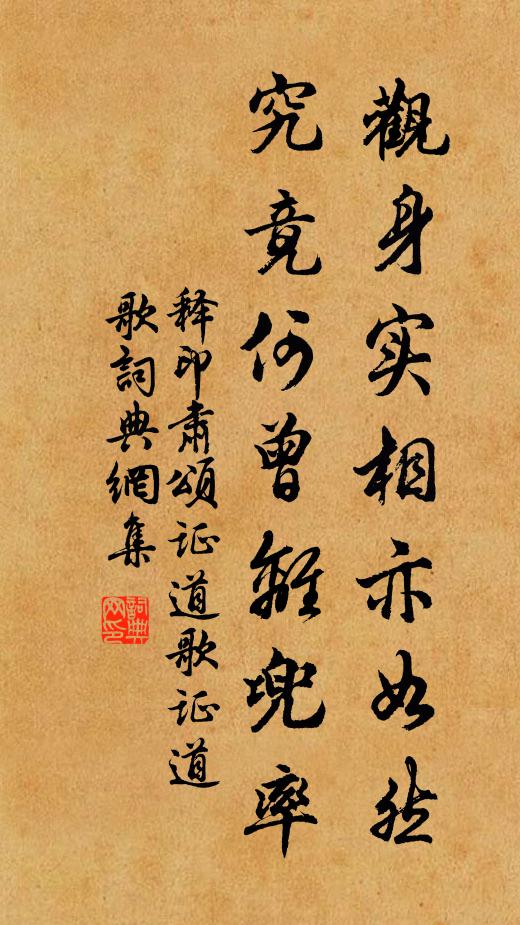 觀身实相亦如然
究竟何曾離兜率
释印肃頌证道歌证道
歌詞典網集
詞典
网印